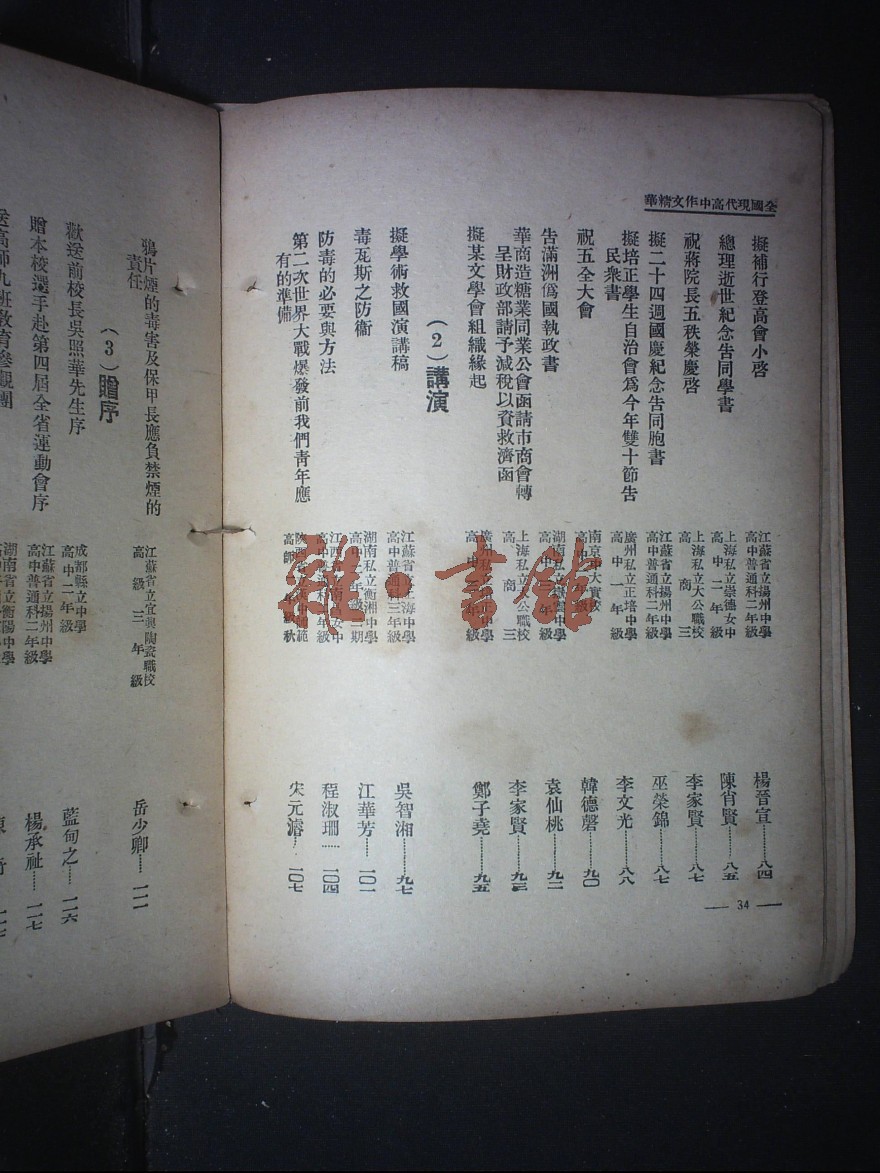 全國現代高中作文精華
擬補行登高會小啓
江蘇省立揚州中學
高中普通科二年級
楊晉宣……八四
總理逝世紀念告同學書
上海私立崇德女中
高中二年級
陳肖賢……八五
祝蔣院長五秩榮慶啓
上海私立大公職校
高商三
李家賢……八七
擬二十四週國慶紀念告同胞書
江蘇省立揚州中學
高中普通科二年級
巫榮錦……八七
擬培正學生自治會爲今年雙十節告
民衆書
廣州私立正培中學
高中一年級
李文光……八八
祝五全大會
南京中大實校
韓德馨……九〇
告滿洲僞國執政書
湖南私立
中學
袁仙桃……九二
華商造糖業同業公會函請市商會轉
呈財政部請予減稅以資救濟函
上海私立大公職校
高商三
李家賢……九三
擬某文學會組織緣起
廣州私立
中學
鄭子堯……九五
（2）講演
擬學術救國演講稿
江蘇省立上海中學
高中普通科三年級
吳智湘……九七
毒瓦斯之防衞
湖南私立衡湘中學
江華芳……一〇一
防毒的必要與方法
江西
女中
程淑珊……一〇四
第二次世界大戰爆發前我們靑年應
有的準備
宋元濬……一〇七
雜·書館
— 34 —
鴉片煙的毒害及保甲長應負禁煙的
責任
江蘇省立宜興陶瓷職校
高級三年級
岳少卿……一一一
（3）贈序
歡送前校長吳照華先生序
成都縣立中學
高中二年級
藍甸之……一一六
贈本校選手赴第四屆全省運動會序
江蘇省立揚州中學
高中普通科二年級
楊承祉……一一七
送高師九班敎育參觀團
湖南省立衡陽中學